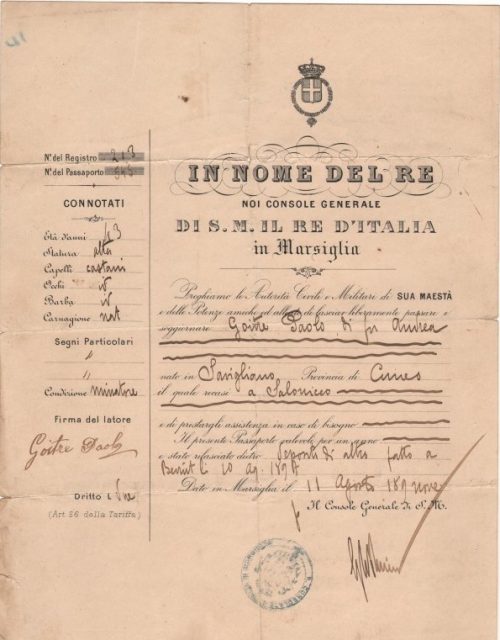 IN NOME DEL RE
NOI CONSOLE GENERALE
DI S. M. IL RE D'ITALIA
in Marsiglia
N.º del Registro 213
N.º del Passaporto
CONNOTATI
Età d'anni 43
Statura alta
Capelli castani
Occhi id
Barba id
Carnagione nat
Segni Particolari
"
"
Condizione minatore
Firma del latore
Goitre Paolo
Dritto L.
(Art 56 della Tariffa)
Preghiamo le Autorità Civili e Militari di SUA MAESTÀ
e delle Potenze amiche ed alleate di lasciar liberamente passare e
soggiornare Goitre Paolo, di fu Andrea
nato in Savigliano Provincia di Cuneo
il quale recasi a Salonicco
e di prestargli assistenza in caso di bisogno
Il presente Passaporto valevole per un anno
è stato rilasciato dietro deposito di altro fatto a
10 Ag. 189
Dato in Marsiglia il 11 Agosto 189 nove
Il Console Generale di S. M.